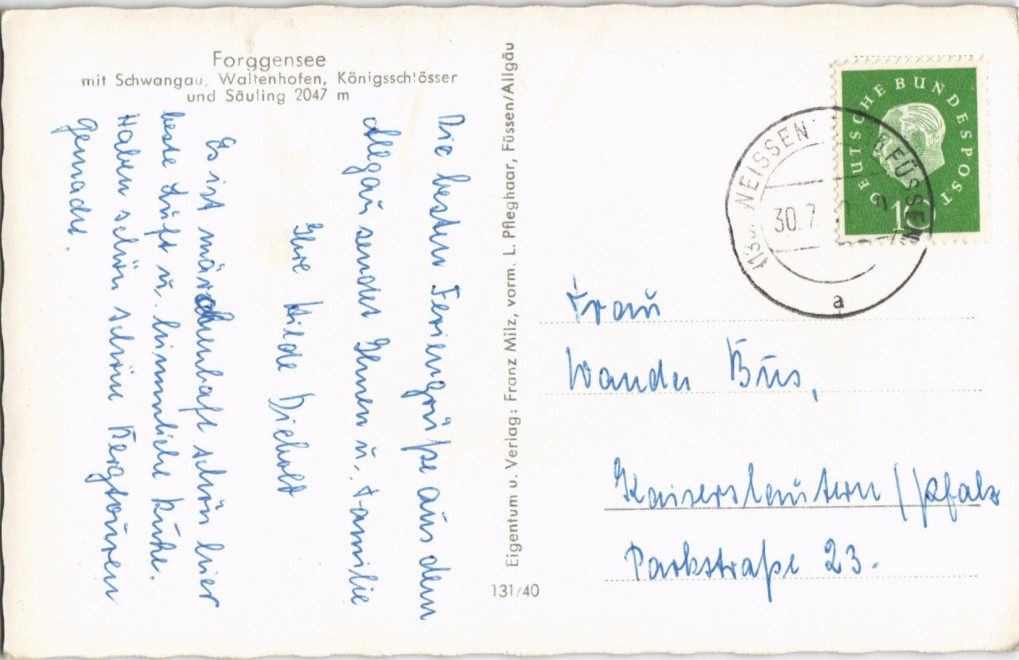 Forggensee
mit Schwangau, Waltenhofen, Königsschlösser
und Säuling 2047 m
Die besten Feriengrüße aus dem
Allgäu sendet Ihnen u. Familie
Ihre Hilde Diebold
Es ist märchenhaft schön hier
beste Luft u. himmlische Ruhe.
Haben schön schöne Bergtouren
gemacht.
Eigentum u. Verlag: Franz Milz, vorm. L. Pfleghaar, Füssen/Allgäu
131/40
DEUTSCHE BUNDESPOST
10
WEISSEN B. FÜSSEN
30.7
a
Frau
Wanda Bus,
Kaiserslautern / Pfalz
Parkstraße 23.